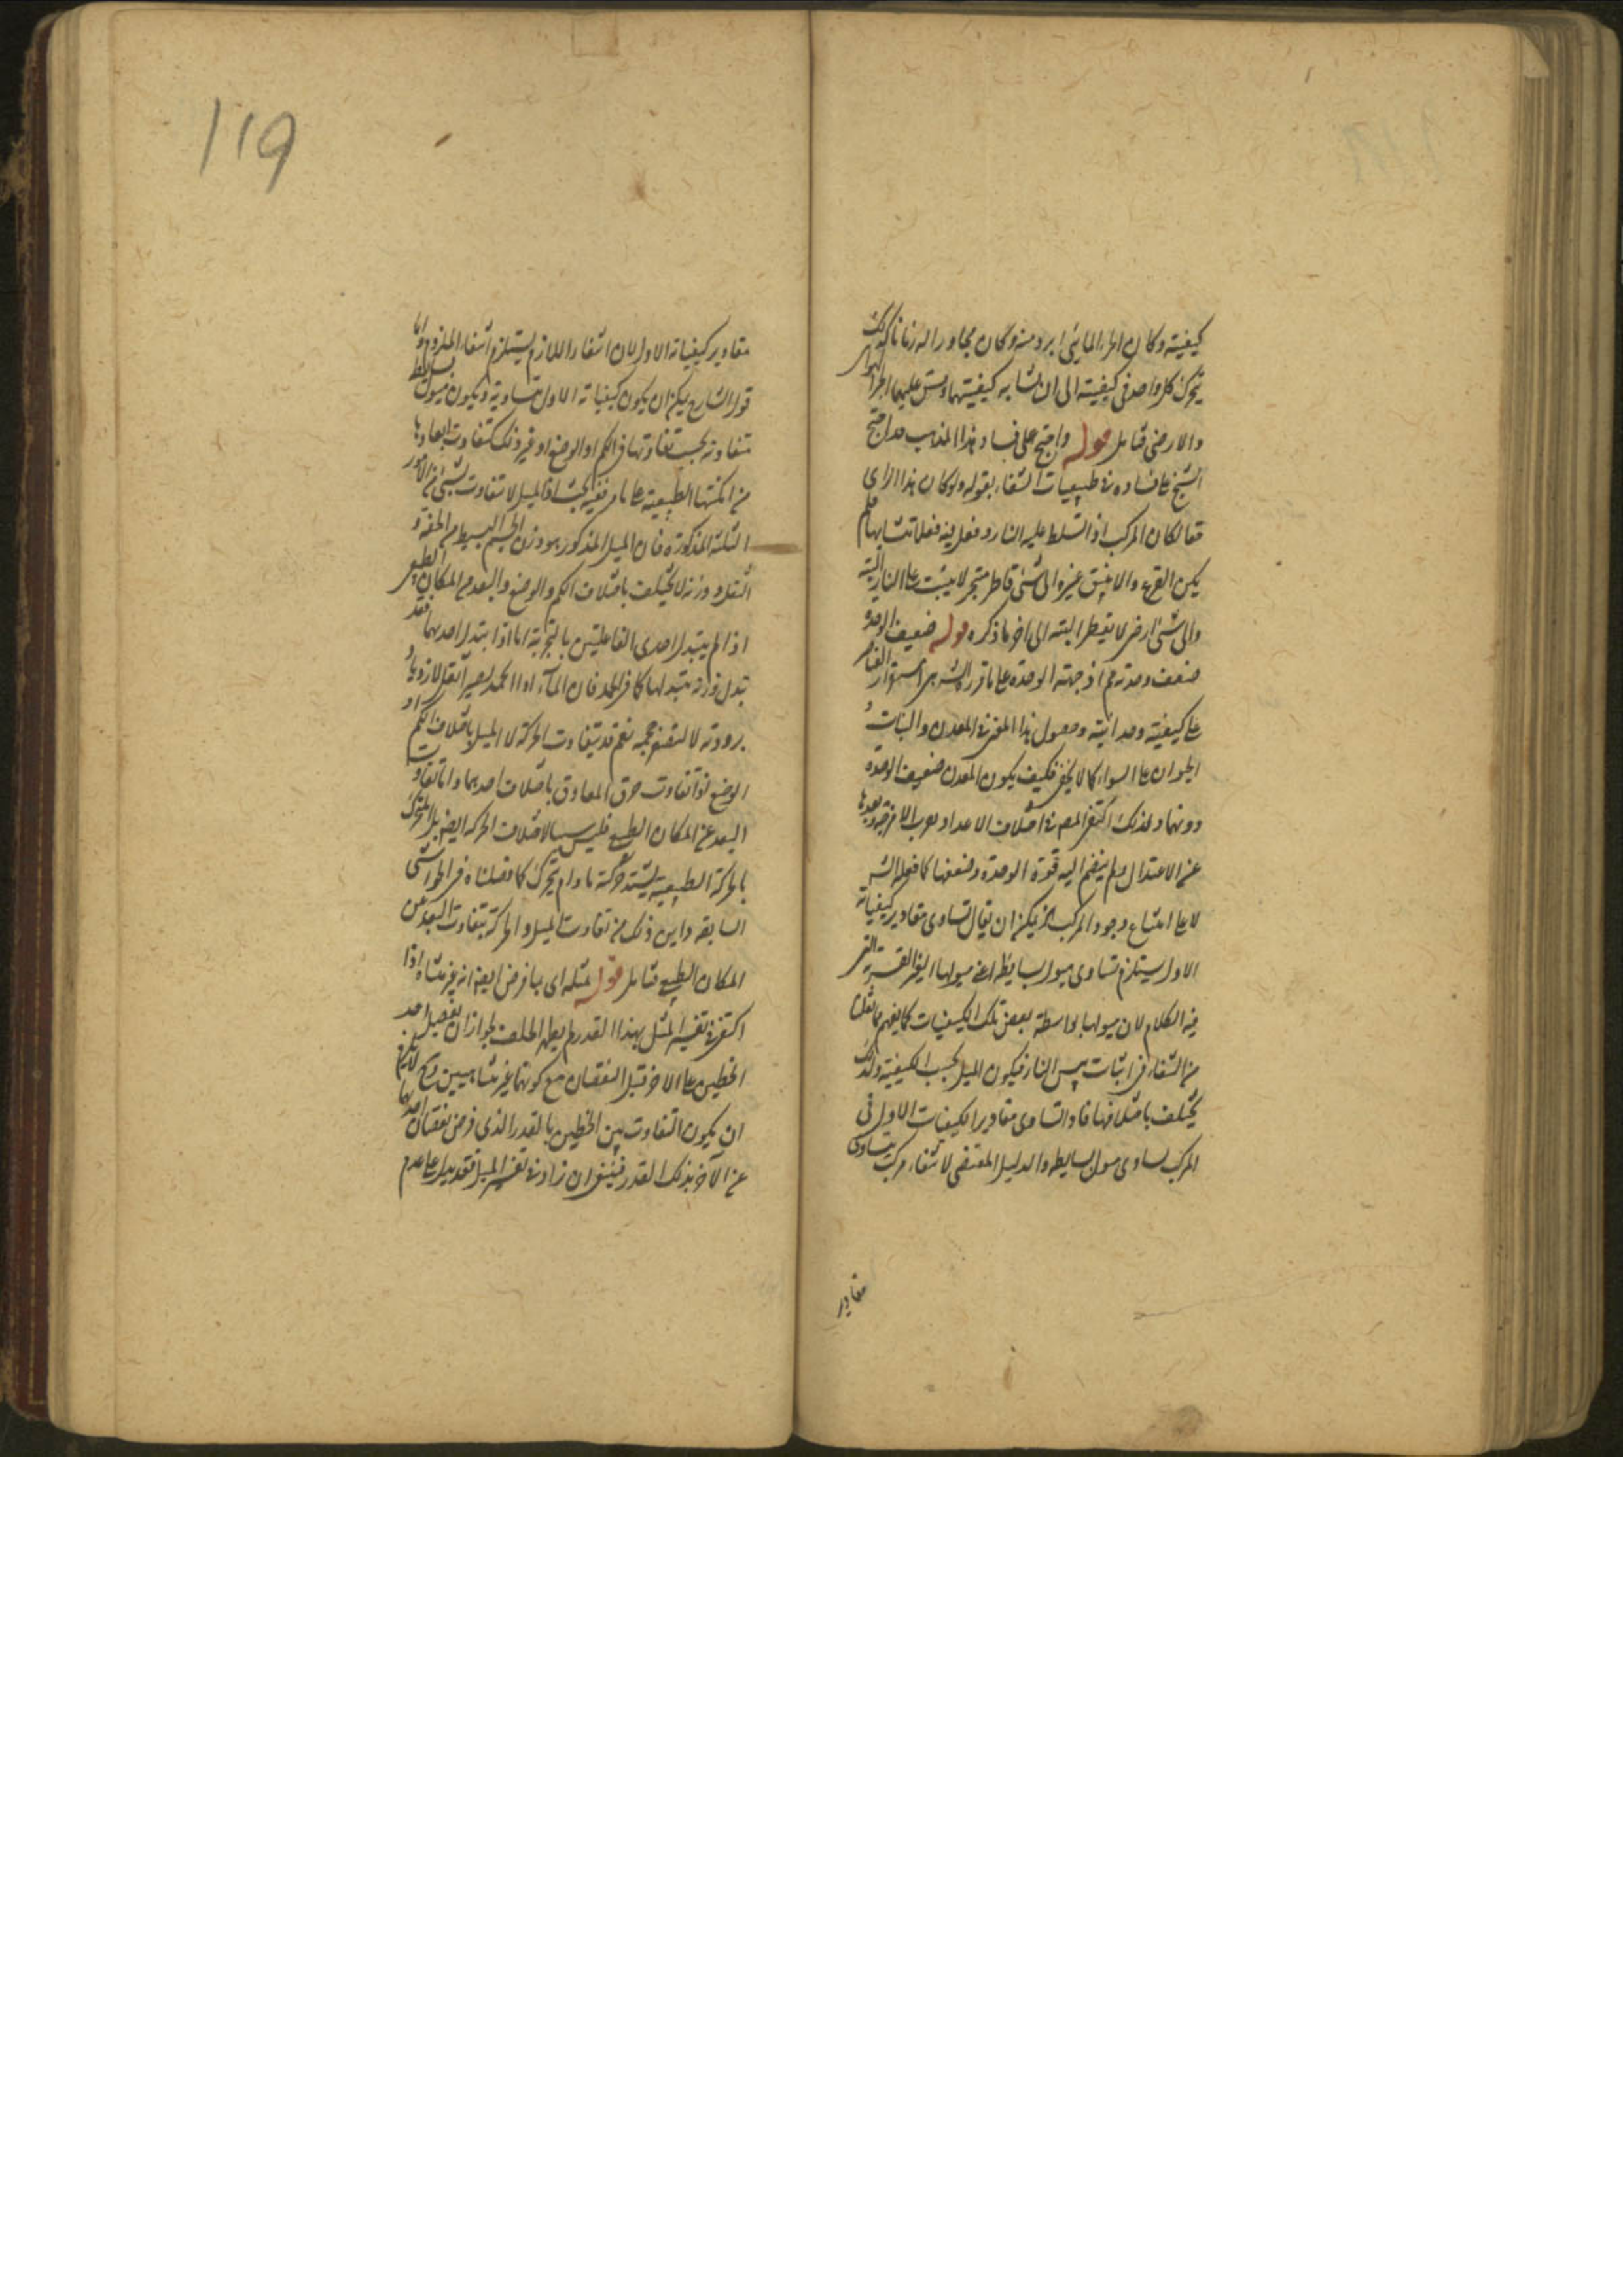 كيفيته وكان الجزء المايى ابرد منه وكان مجاورا له زمانا كذلك
يتحرك كل واحد فى كيفيته الى ان تشابه كيفيتهما وقس عليهما الجزء الهوائى
والارضى فتامل قوله واحتج على فساد هذا المذهب قد احتج
الشيخ على فساده فى طبيعيات الشفاء بقوله ولو كان هذا الراى
حقا لكان المركب اذا تسلط عليه النار وفعل فيه فعلا تشابها فلم
يكن القرع والانبيق غيره الى شئ قاطر متبخر لا يثبت على النار البتة
والى شئ ارضى لا يقطر البتة الى اخر ما ذكره قوله ضعيف الوحدة
ضعف وحدته اذ جهة الوحدة على ما قرره الش هى استقرار العناصر
على كيفية وحدانية وحصول هذا المعنى فى المعدن والنبات و
الحيوان على السواء كما لا يخفى فكيف يكون المعدن ضعيف الوحدة
دونهما ولذلك اكتفى المص فى اختلاف الاعداد بقرب الامزجة وبعدها
عن الاعتدال ولم ينضم اليه قوة الوحدة وضعفها كما فعله الش
لا على امتناع وجود المركب اذ يمكن ان يقال تساوى مقادير كيفياته
الاول يستلزم تساوى ميول بسايطه اعنى ميولها الغير القسرية التى
فيه الكلام لان ميولها بواسطة بعض تلك الكيفيات كما يفهم مما نقلنا
من الشفاء فى اثبات يبس النار فيكون الميل بحسب الكيفية ولذلك
يختلف باختلافها فاذا تساوى مقادير الكيفيات الاول فى
المركب تساوى ميول بسايطه والدليل المقتضى لانتفاء مركب تساوى
مقادير
119
مقادير كيفياته الاول لان انتفاء اللازم يستلزم انتفاء الملزوم واما
قول الشارح يمكن ان يكون كيفياته الاول متساوية ويكون ميول بسايطه
متفاوتة بحسب تفاوتها فى الكم او الوضع او غير ذلك كتفاوت ابعادها
من امكنتها الطبيعية على ما مر ففيه بحث اذ الميل لا يتفاوت بشئ من الامور
الثلثة المذكورة فان الميل المذكور هو وزن الجسم البسيط من الخفة و
الثقل ووزنه لا يختلف باختلاف الكم والوضع والبعد من المكان الطبيعى
اذا لم يتبدل احدى الفاعلتين بالتجربة اما اذا تبدل احديهما فقد
تبدل وزنه بتبدلها كما فى الجمد فان الماء اذا انجمد يصير اثقل لازدياد
برودته لا لنقص حجمه نعم قد يتفاوت الحركة لا الميل باختلاف الكم او
الوضع لتفاوت خرق المعاوق باختلاف احديهما واما تفاوت
البعد عن المكان الطبيعى فليس سببا لاختلاف الحركة ايضا بل المتحرك
بالحركة الطبيعية يشتد حركته ما دام يتحرك كما فصلناه فى الحواشى
السابقة واين ذلك من تفاوت الميل والحركة بتفاوت البعد عن
المكان الطبيعى فتامل قوله بمثله اى بما فرض ايضا انه غير متناه اذا
اكتفى فى تفسير المثل بهذا القدر لم يظهر الخلف لجواز ان يفضل احد
الخطين على الاخر قبل النقصان مع كونهما غير متناهيين وح لا يلزم
ان يكون التفاوت بين الخطين بالقدر الذى فرض نقصان احديهما
عن الآخر بذلك القدر فينبغى ان زاد فى تفسير المثل قيد يدل على عدم